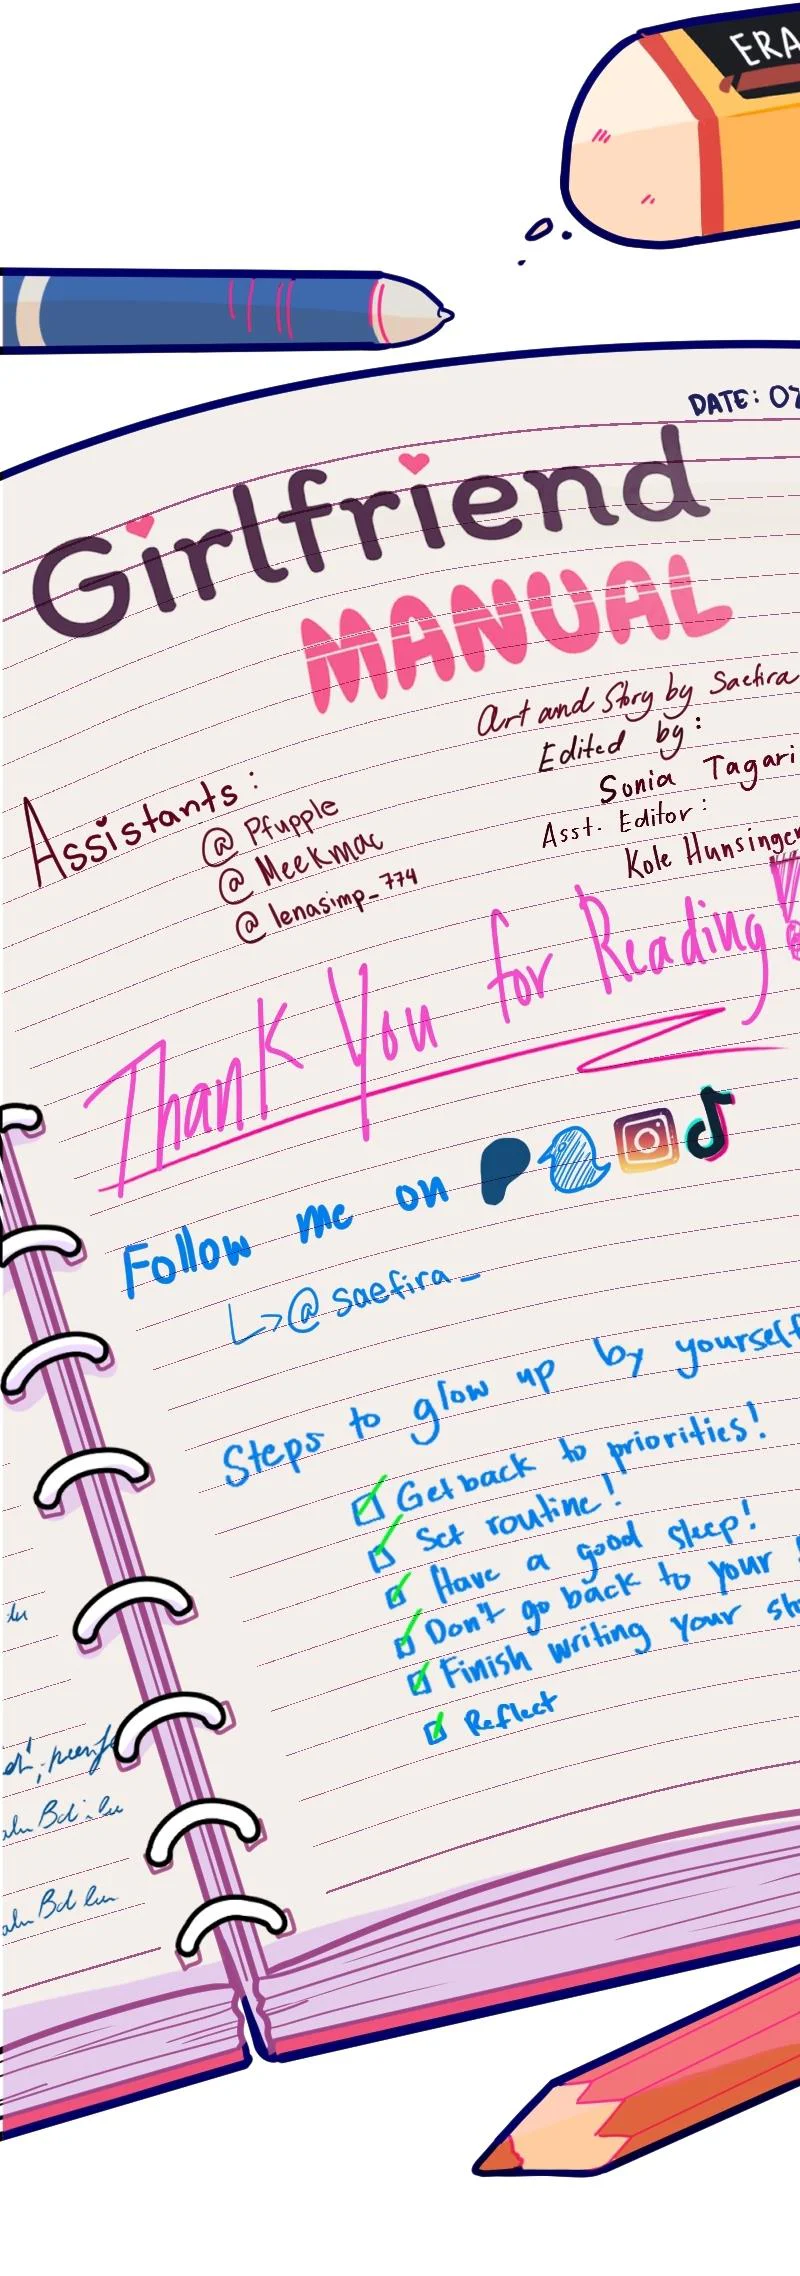 ERA
DATE: 07
Girlfriend
MANUAL
Art and Story by Saefira
Edited by:
Sonia Tagari
Asst. Editor:
Kole Hunsinger
Assistants:
@ Pfupple
@ Meekmac
@ lenasimp_774
Thank You for Reading!
Follow me on
@saefira_
Steps to glow up by yourself
Get back to priorities!
Set routine!
Have a good sleep!
Don't go back to your
Finish writing your
Reflect